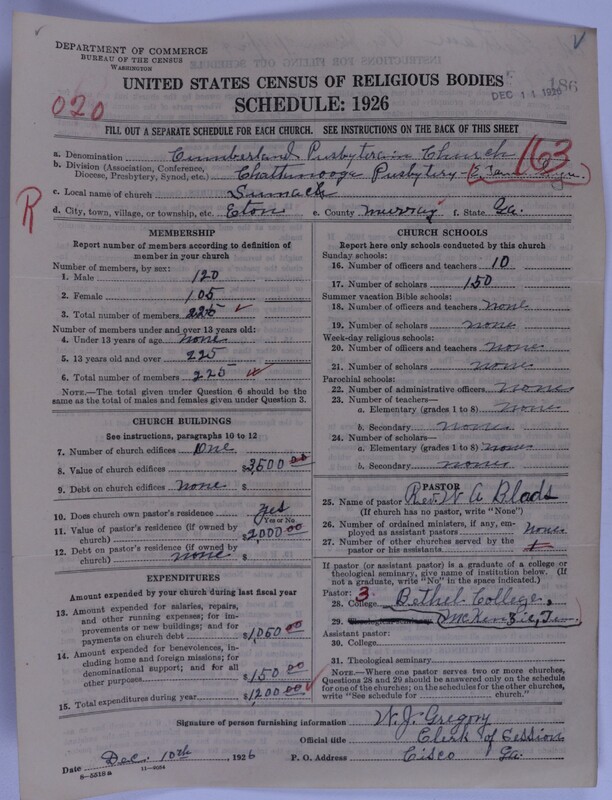 DEPARTMENT OF COMMERCE
BUREAU OF THE CENSUS
WASHINGTON
UNITED STATES CENSUS OF RELIGIOUS BODIES
SCHEDULE: 1926
DEC 14 1926
186
020
FILL OUT A SEPARATE SCHEDULE FOR EACH CHURCH. SEE INSTRUCTIONS ON THE BACK OF THIS SHEET
163
a. Denomination Cumberland Presbyterian Church
b. Division (Association, Conference, Diocese, Presbytery, Synod, etc.) Chattanooga Presbytery - E. Tenn.
c. Local name of church Sumach
d. City, town, village, or township, etc. Eton e. County Murray f. State Ga.
R
MEMBERSHIP
Report number of members according to definition of member in your church
Number of members, by sex:
1. Male 120
2. Female 105
3. Total number of members 225
Number of members under and over 13 years old:
4. Under 13 years of age none
5. 13 years old and over 225
6. Total number of members 225
NOTE.—The total given under Question 6 should be the same as the total of males and females given under Question 3.
CHURCH BUILDINGS
See instructions, paragraphs 10 to 12
7. Number of church edifices One
8. Value of church edifices $3,500 00
9. Debt on church edifices none $
10. Does church own pastor's residence yes
Yes or No
11. Value of pastor's residence (if owned by church) $2,000 00
12. Debt on pastor's residence (if owned by church) none $
EXPENDITURES
Amount expended by your church during last fiscal year
13. Amount expended for salaries, repairs, and other running expenses; for improvements or new buildings; and for payments on church debt $1,050 00
14. Amount expended for benevolences, including home and foreign missions; for denominational support; and for all other purposes $150 00
15. Total expenditures during year $1200 00
CHURCH SCHOOLS
Report here only schools conducted by this church
Sunday schools:
16. Number of officers and teachers 10
17. Number of scholars 150
Summer vacation Bible schools:
18. Number of officers and teachers none
19. Number of scholars none
Week-day religious schools:
20. Number of officers and teachers none
21. Number of scholars none
Parochial schools:
22. Number of administrative officers none
23. Number of teachers—
a. Elementary (grades 1 to 8) none
b. Secondary none
24. Number of scholars—
a. Elementary (grades 1 to 8) none
b. Secondary none
PASTOR
25. Name of pastor Rev. W A Blads
(If church has no pastor, write "None")
26. Number of ordained ministers, if any, employed as assistant pastors none
27. Number of other churches served by the pastor or his assistants
If pastor (or assistant pastor) is a graduate of a college or theological seminary, give name of institution below. (If not a graduate, write "No" in the space indicated.)
Pastor: 3.
28. College Bethel College,
29. McKenzie, Ten
Assistant pastor:
30. College
31. Theological seminary
NOTE.—Where one pastor serves two or more churches, Questions 28 and 29 should be answered only on the schedule for one of the churches; on the schedules for the other churches, write "See schedule for church."
Signature of person furnishing information W. J. Gregory
Official title Clerk of Session
Date Dec. 10th, 1926 P. O. Address Cisco Ga.
8—5518a 11—9054